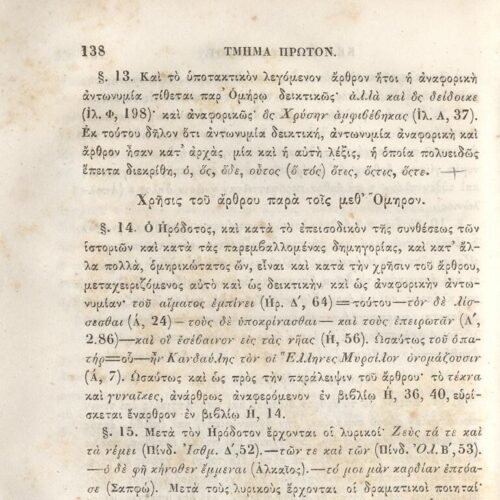 138 ΤΜΗΜΑ ΠΡΩΤΟΝ.
§. 13. Καὶ τὸ ὑποτακτικὸν λεγόμενον ἄρθρον ἤτοι ἡ ἀναφορικὴ
ἀντωνυμία τίθεται παρ' Ὁμήρῳ δεικτικῶς· ἀλλὰ καὶ ὃς δείδοικε
(Ἰλ. Φ, 198)· καὶ ἀναφορικῶς· ὃς Χρύσην ἀμφιβέβηκας (Ἰλ. Α, 37).
Ἐκ τούτου δῆλον ὅτι ἀντωνυμία δεικτική, ἀντωνυμία ἀναφορικὴ καὶ
ἄρθρον ἦσαν κατ' ἀρχὰς μία καὶ ἡ αὐτὴ λέξις, ἡ ὁποία πολυειδῶς
ἔπειτα διεκρίθη, ὁ, ὅς, ὅδε, οὗτος (ὁ τός) ὅτες, ὅςτες, ὅστε.
Χρῆσις τοῦ ἄρθρου παρὰ τοῖς μεθ' Ὅμηρον.
§. 14. Ὁ Ἡρόδοτος, καὶ κατὰ τὸ ἐπεισοδικὸν τῆς συνθέσεως τῶν
ἱστοριῶν καὶ κατὰ τὰς παρεμβαλλομένας δημηγορίας, καὶ κατ' ἄλ-
λα πολλά, ὁμηρικώτατος ὤν, εἶναι καὶ κατὰ τὴν χρῆσιν τοῦ ἄρθρου,
μεταχειριζόμενος αὐτὸ καὶ ὡς δεικτικὴν καὶ ὡς ἀναφορικὴν ἀντω-
νυμίαν· τοῦ αἵματος ἐμπίνει (Ἡρ. Δ', 64)=τούτου—τὸν δὲ λίσ-
σεσθαι (Ά, 24)—τοὺς δὲ ὑποκρίνασθαι—καὶ τοὺς ἐπειρωτᾶν (Α',
2.86)—καὶ οἳ ἐσέβαινον εἰς τὰς νῆας (Ή, 56). Ὡσαύτως τοῦ ὑπα-
τὴρ=οὗ—ἦν Κανδαύλης τὸν οἱ Ἕλληνες Μυρσίλον ὀνομάζουσιν
(Ά, 7). Ὡσαύτως καὶ ὡς πρὸς τὴν παράλειψιν τοῦ ἄρθρου· τὸ τέκνα
καὶ γυναῖκες, ἀνάρθρως ἀναφερόμενον ἐν βιβλίῳ Ή, 36, 40, εὑρί-
σκεται ἔναρθρον ἐν βιβλίῳ Ή, 14.
§. 15. Μετὰ τὸν Ἡρόδοτον ἔρχονται οἱ λυρικοί· Ζεὺς τά τε καὶ
τὰ νέμει (Πίνδ. Ἰσθμ. Δ', 52).—τῶν τε καὶ τῶν (Πίνδ. Ὀλ. Β', 53).
—ὁ δὲ φῆ κήνοθεν ἔμμεναι (Ἀλκαῖος).—τό μοι μὰν καρδίαν ἐπτόα-
σε (Σαπφώ). Μετὰ τοὺς λυρικοὺς ἔρχονται οἱ δραματικοὶ ποιηταί·